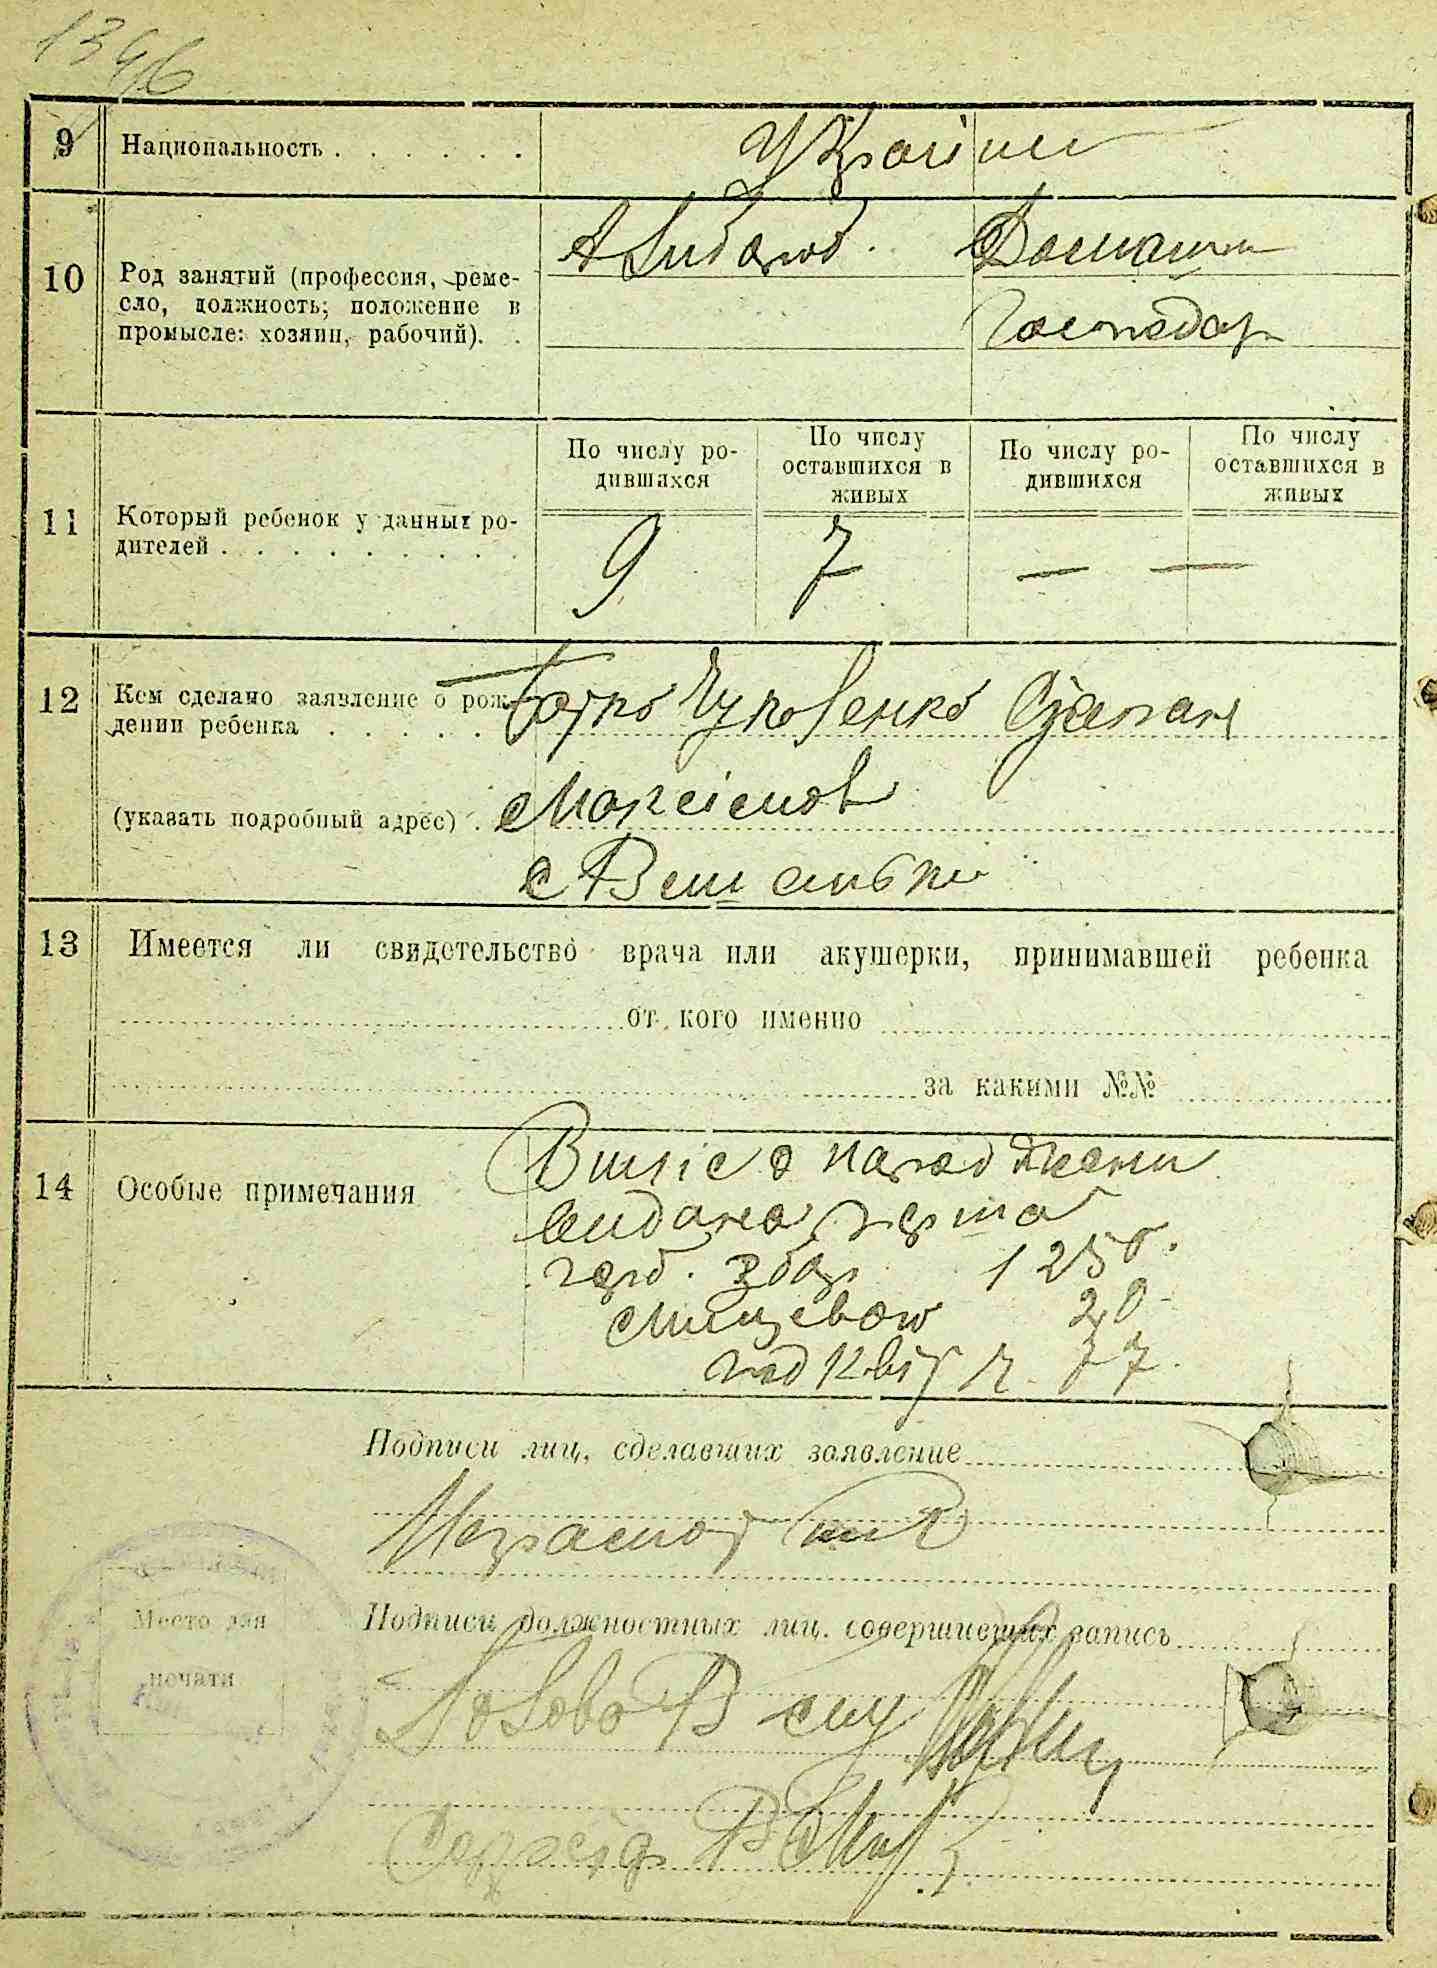 9 Национальность . . . . . . Україн
10 Род занятий (профессия, реме-
сло, должность; положение в
промысле: хозяин, рабочий). .
Хлибороб. Домашн
Господар
11 Который ребенок у данных ро-
дителей . . . . . . . . .
По числу ро-
дившихся
По числу
оставшихся в
живых
По числу ро-
дившихся
По числу
оставшихся в
живых
9 7 — —
12 Кем сделано заявление о рож-
дении ребенка . . . . . Батко Чуповенко Степан
(указать подробный адрес) . Максімов
с
13 Имеется ли свидетельство врача или акушерки, принимавшей ребенка
от кого именно
за какими №№
14 Особые примечания
Випіс о народжени
видана
герб. збор 125
Мисцевого 20
під Квіт
Подписи лиц, сделавших заявление
Неграмотний
Подписи должностных лиц, совершивших запись
Место для
печати
Голова В
Секретар В